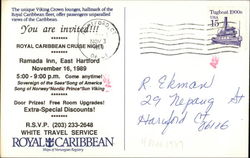 The unique Viking Crown lounges, hallmark of the
Royal Caribbean fleet, offer passengers unparalleled
views of the Caribbean.
You are invited!!!
ROYAL CARIBBEAN CRUISE NIGHT
Ramada Inn, East Hartford
November 16, 1989
5:00 - 9:00 p.m. Come anytime!
Sovereign of the Seas*Song of America
Song of Norway*Nordic Prince*Sun Viking
Door Prizes! Free Room Upgrades!
Extra-Special Discounts!
R.S.V.P. (203) 233-2648
WHITE TRAVEL SERVICE
ROYAL CARIBBEAN
Ships of Norwegian Registry
Tugboat 1900s
USA
15
R. Ekman
29 Nepaug St
Hartford Ct
06106